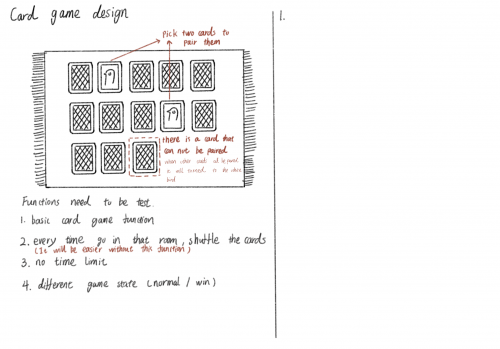 Card game design
pick two cards to
pair them
there is a card that
can not be paired
when other cards all be paired
Functions need to be test.
1. basic card game function
2. every time go in that room, shuttle the cards
(It will be easier without this function)
3. no time limit
4. different game state (normal / win)
1.